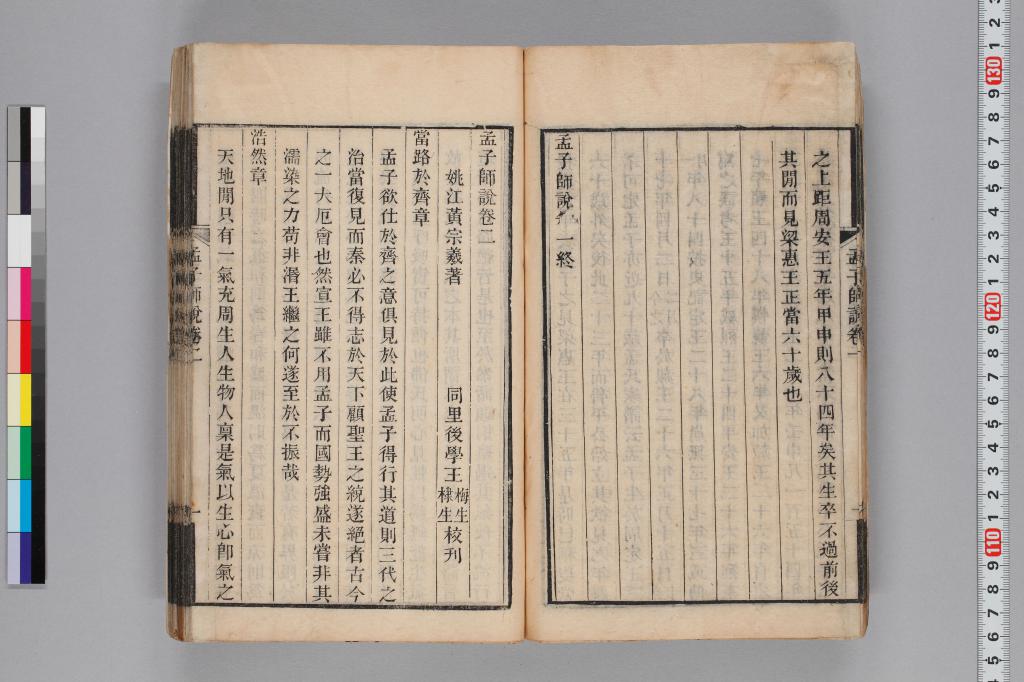 之上距周安王五年甲申則八十四年矣其生卒不過前後
其閒而見梁惠王正當六十歲也
孟子師說卷一終
孟子師說卷二
姚江黃宗羲著 同里後學王梅生棣生校刊
當路於齊章
孟子欲仕於齊之意俱見於此使孟子得行其道則三代之
治當復見而秦必不得志於天下顧聖王之統遂絕者古今
之一大厄會也然宣王雖不用孟子而國勢強盛未嘗非其
濡染之力苟非湣王繼之何遂至於不振哉
浩然章
天地閒只有一氣充周生人生物人稟是氣以生心卽氣之
孟子師說卷二
一
孟子師說卷一